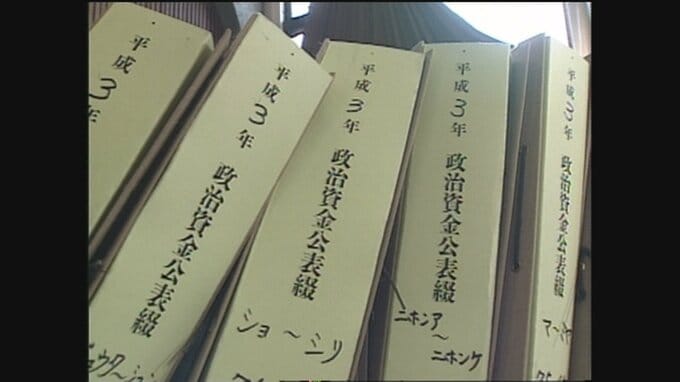 平成3年
平成3年 政治資金公表綴
平成3年 政治資金公表綴
ショ〜ミリ
平成3年 政治資金公表綴
ニホンア
〜
ニホンケ
平成3年 政治資金公表綴